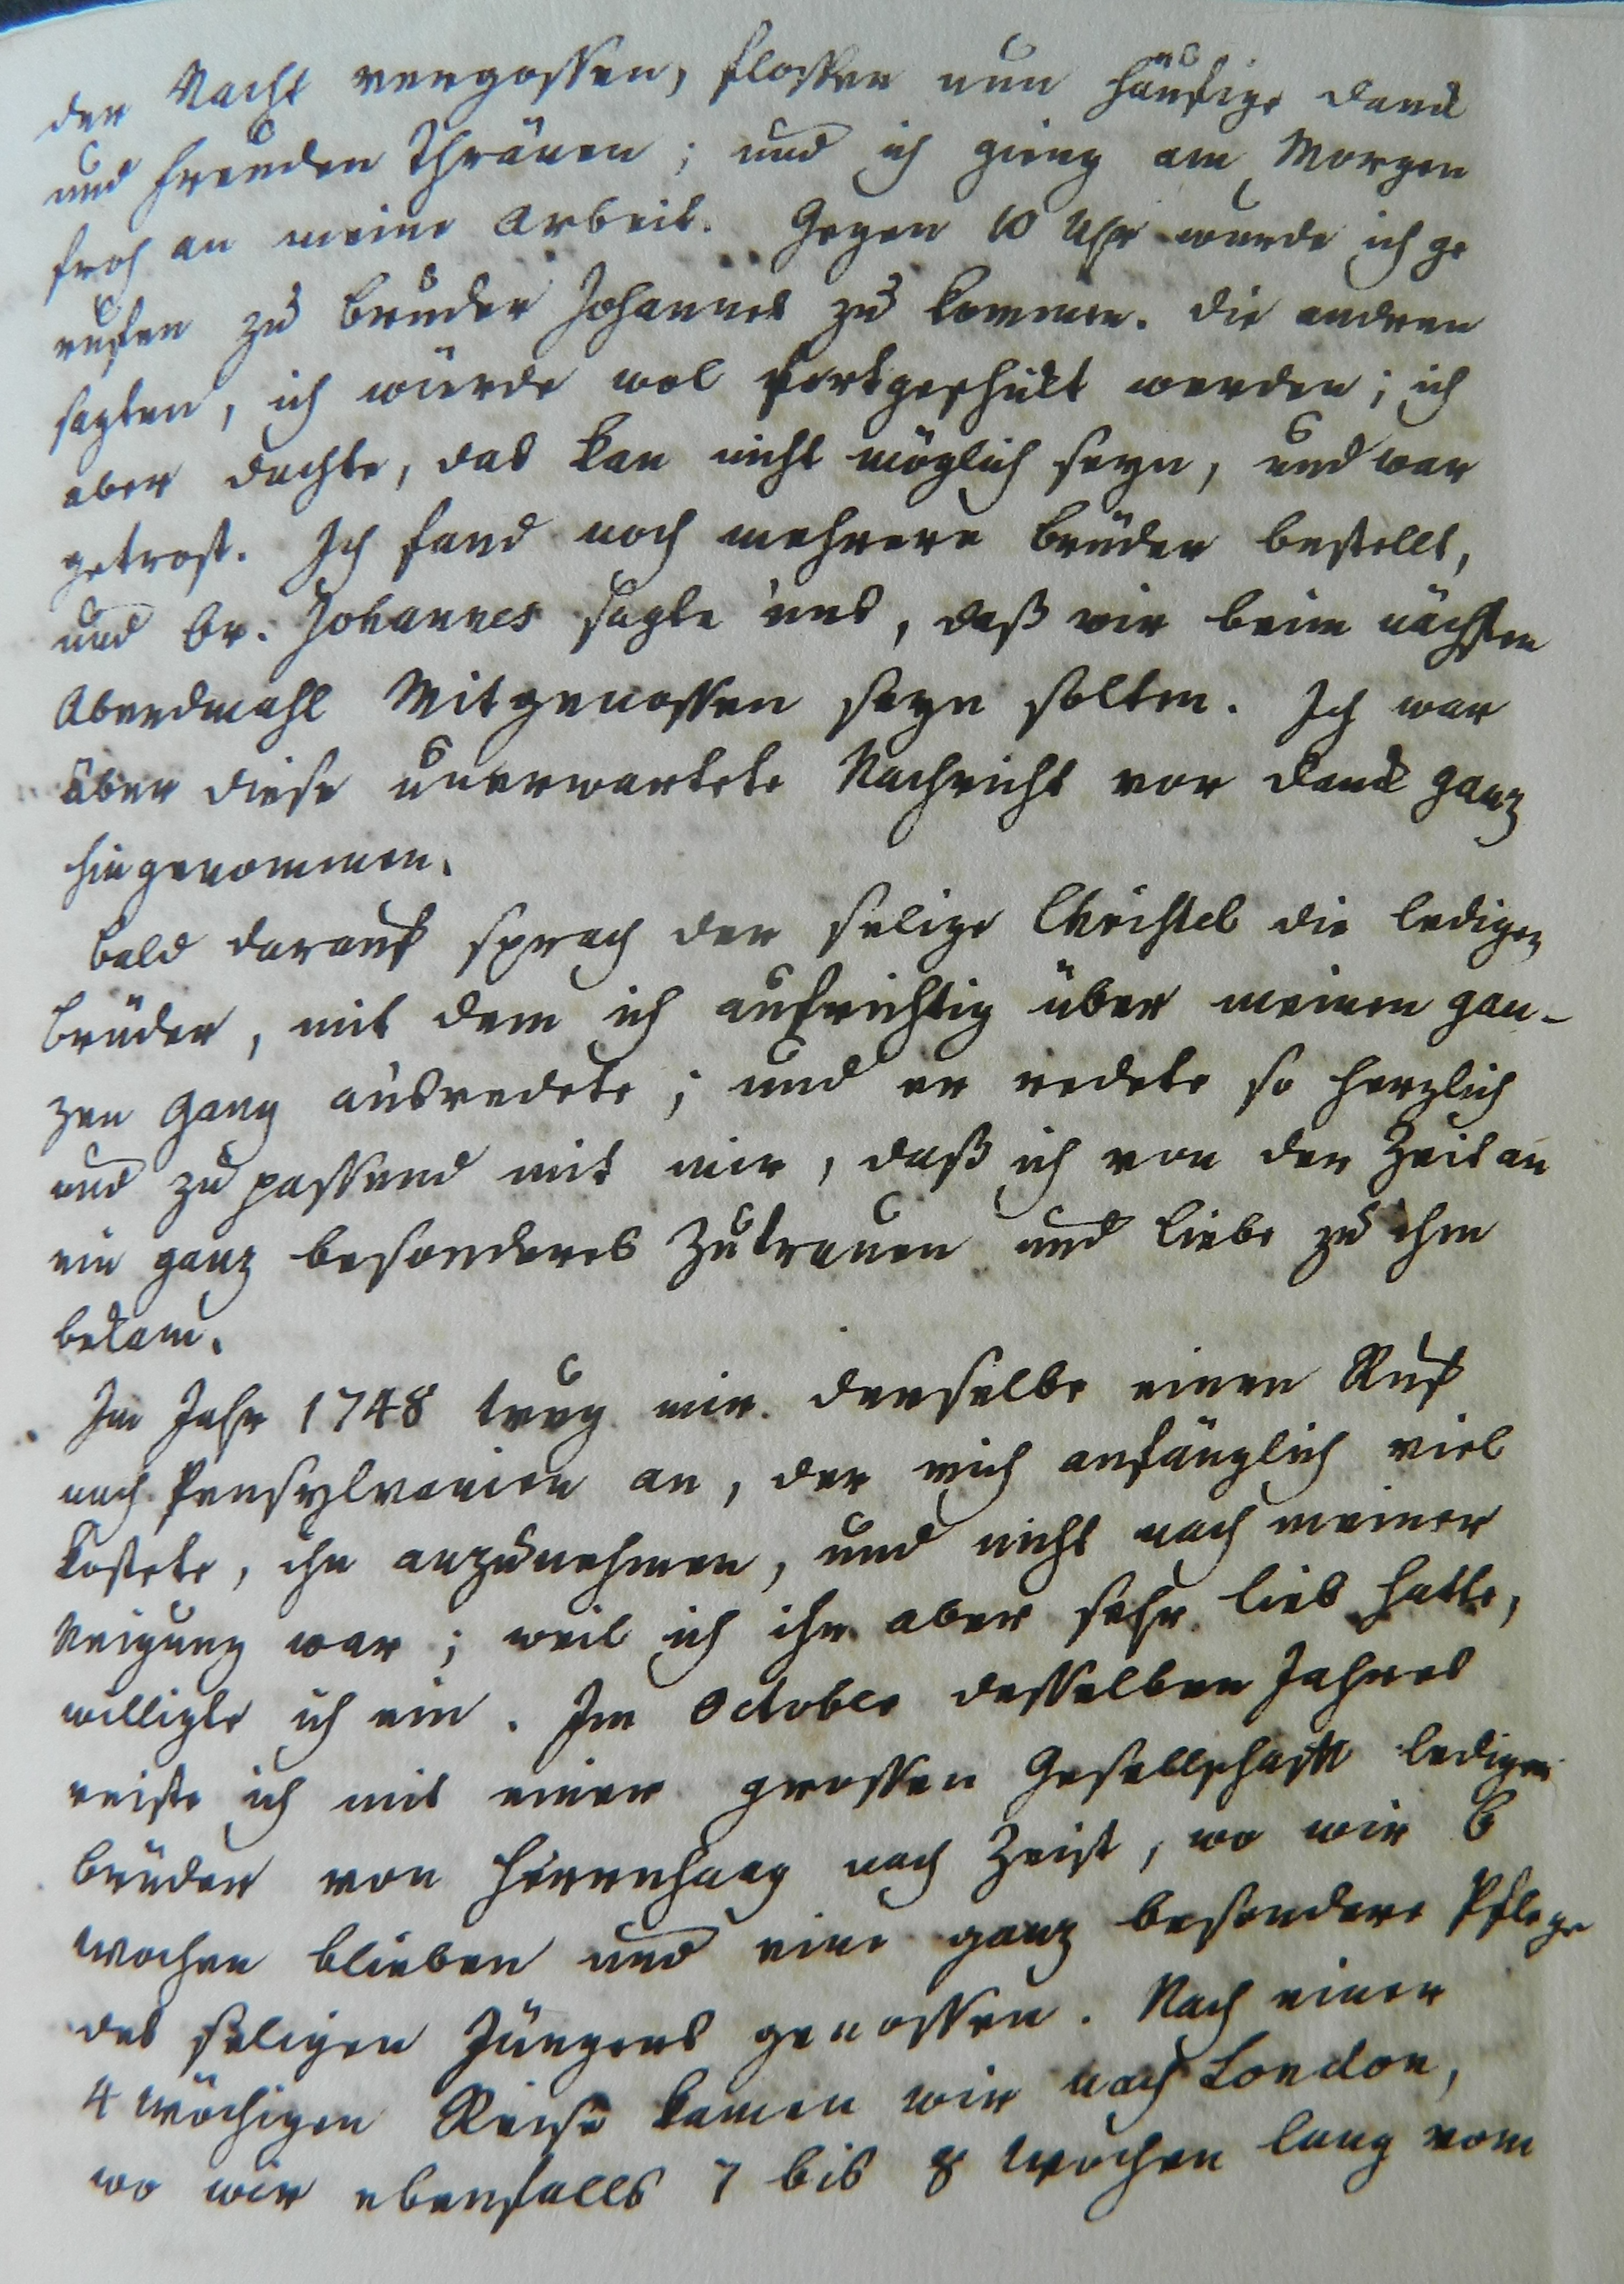 der Nacht vergossen, flossen nun häufige Dank
und Freuden Thränen; und ich gieng am Morgen
froh an meine Arbeit. Gegen 10 Uhr wurde ich ge
rufen zu Bruder Johannes zu kommen. Die andren
sagten, ich würde wol fortgeschikt werden; ich
aber dachte, das kan nicht möglich seyn, und war
getrost. Ich fand noch mehrere Brüder bestellt,
und Br. Johannes sagte uns, daß wir beim nächsten
Abendmahl Mitgenossen seyn solten. Ich war
über diese unerwartete Nachricht vor Dank ganz
hingenommen.
Bald darauf sprach der selige Christel die ledigen
Brüder, mit dem ich aufrichtig über meinen gan-
zen Gang ausredete; und er redete so herzlich
und zu passend mit mir, daß ich von der Zeit an
ein ganz besonderes Zutrauen und Liebe zu ihm
bekam.
Im Jahr 1748 trug mir derselbe einen Ruf
nach Pensylvanien an, der mich anfänglich viel
kostete, ihn anzunehmen, und nicht nach meiner
Neigung war; weil ich ihn aber sehr lieb hatte,
willigte ich ein. Im October desselben Jahres
reiste ich mit einer grossen Gesellschaft lediger
Brüder von Herrnhaag nach Zeist, wo wir 6
Wochen blieben und eine ganz besondere Pflege
des seligen Jüngers genossen. Nach einer
4 wöchigen Reise kamen wir nach London,
wo wir ebenfalls 7 bis 8 Wochen lang vom